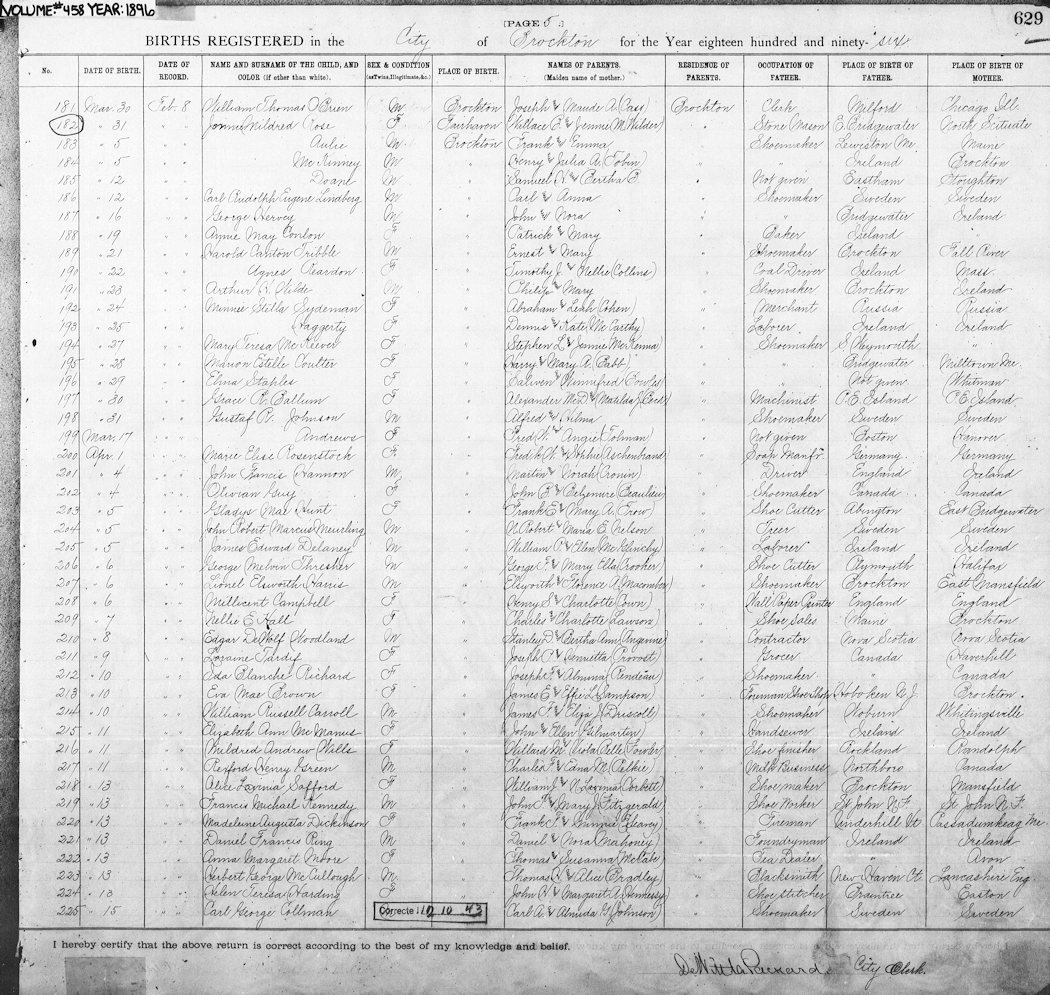 VOLUME#458 YEAR: 1896
[PAGE 5 .]
629
BIRTHS REGISTERED in the City of Brockton for the Year eighteen hundred and ninety-six
No. DATE OF BIRTH. DATE OF RECORD. NAME AND SURNAME OF THE CHILD, AND COLOR (if other than white). SEX & CONDITION (as Twins, Illegitimate, &c.) PLACE OF BIRTH. NAMES OF PARENTS. (Maiden name of mother.) RESIDENCE OF PARENTS. OCCUPATION OF FATHER. PLACE OF BIRTH OF FATHER. PLACE OF BIRTH OF MOTHER.
181 Mar. 30 Feb. 8 William Thomas O'Brien M Brockton Joseph & Maude A (Cass) Brockton Clerk Milford Chicago Ill.
182 " 31 " " Jennie Mildred Rose F Fairhaven Wallace F. & Jennie (M Wilder) " Stone Mason E. Bridgewater North Scituate
183 " 5 " " M Brockton Frank & Emma " Shoemaker Lewiston Me. Maine
184 " 5 " " McKinney M " Henry & Julia A. (Tobin) " " Ireland Brockton
185 " 12 " " Doane M " Samuel N & Bertha E " Not given Eastham Stoughton
186 " 12 " " Carl Rudolph Eugene Lindberg M " Carl & Anna " Shoemaker Sweden Sweden
187 " 16 " " George Hervey M " John & Nora " " Bridgewater Ireland
188 " 19 " " Annie May Conlon F " Patrick & Mary " Baker Ireland "
189 " 21 " " Harold Carlton Tribble M " Ernest & Mary " Shoemaker Brockton Fall River
190 " 22 " " Agnes Reardon F " Timothy J. & Nellie (Collins) " Coal Driver Ireland Mass.
191 " 23 " " Arthur Wilde M " Philip & Mary " Shoemaker Brockton Ireland
192 " 24 " " Minnie Stella Sydeman F " Abraham & Leah (Cohen) " Merchant Russia Russia
193 " 25 " " Haggerty F " Dennis & Kate (McCarthy) " Laborer Ireland Ireland
194 " 27 " " Mary Teresa McKeever F " Stephen L & Jennie (McKenna) " Shoemaker S Weymouth "
195 " 28 " " Marion Estelle Coulter F " Harry & Mary A. (Babb) " " Bridgewater Milltown Me.
196 " 29 " " Elma Staples F " & Winnifred (Cowles) " " Not given Whitman
197 " 30 " " Grace R. Callum F " Alexander McD. & Matilda J. " Machinist P. E. Island P. E. Island
198 " 31 " " Gustaf R. Johnson M " Alfred & Hilma " Shoemaker Sweden Sweden
199 Mar. 17 " " Andrews F " Fred W. & Angie (Tolman) " Not given Boston Hanover
200 Apr. 1 " " Marie Elise Rosenstock F " Fredk W. & Aschenbrand " Soap Manfr. Germany Germany
201 " 4 " " John Francis Hannon M " Martin & Norah (Cronin) " Driver England Ireland
212 " 4 " " Olivian Guy F " John B & (Beaulieu) " Shoemaker Canada Canada
213 " 5 " " Gladys Mae Hunt F " Frank E & Mary A. (Crow) " Shoe Cutter Abington East Bridgewater
204 " 5 " " John Robert (Marcus Meurling M " N. Robert & Maria E. Nelson " Sweden Sweden
205 " 5 " " James Edward Delaney M " William P. & Ellen (McGlinchy) " Laborer Ireland Ireland
206 " 6 " " George Melvin Thresher M " George T & Mary Ella (Crooker) " Shoe Cutter Plymouth Halifax
207 " 6 " " Lionel Elsworth Harris M " Elsworth & Florence A (Macomber) " Shoemaker Brockton East Mansfield
208 " 6 " " Millicent Campbell F " Henry S & Charlotte (Cown) " Wall Paper Printer England England
209 " 7 " " Nellie E. Hall F " Charles & Charlotte (Lawson) " Shoe Sales Maine Brockton
210 " 8 " " Edgar DeWolf Woodland M " Stanley P & Bertha Ann " Contractor Nova Scotia Nova Scotia
211 " 9 " " Loraine Tardif F " Joseph P. & Henrietta (Provost) " Grocer Canada Haverhill
212 " 10 " " Ida Blanche Richard F " Joseph T & Almina (Rendeau) " Shoemaker " Canada
213 " 10 " " Eva Mae Brown F " James E. & Effie L. (Sampson) " Foreman Shoe Shop Hoboken N.J. Brockton
214 " 10 " " William Russell Carroll M " James F & Eliza J (Driscoll) " Shoemaker Woburn Whitingsville
215 " 11 " " Elizabeth Ann McManus F " John & Ellen (Gilmartin) " Handsewer Ireland Ireland
216 " 11 " " Mildred Andrew Wills F " Willard M & Viola Belle (Fowler) " Shoe finisher Rockland Randolph
217 " 11 " " Rexford Henry Green M " Charles F & Edna M. (Pelkie) " Milk Business Northboro Canada
218 " 13 " " Alice Lavinia Safford F " William J & N. Lavinia (Corbett) " Shoemaker Brockton Mansfield
219 " 13 " " Francis Michael Kennedy M " John P. & Mary J (Fitzgerald) " Shoe Worker St John N. F. St John N. F.
220 " 13 " " Madeleine Augusta Dickinson F " Frank T & Minnie F " Fireman Underhill Vt Passadumkeag Me.
221 " 13 " " Daniel Francis Ring M " Daniel & Nora (Mahoney) " Foundryman Ireland Ireland
222 " 13 " " Anna Margaret Moore F " Thomas & Susanna (McCabe) " Tea Dealer " Avon
223 " 13 " " Herbert George McCullough M " Thomas H & Alice (Bradley) " Blacksmith New Haven Ct. Lancashire Eng.
224 " 13 " " Helen Teresa Harding F " John H & Margaret A. (Hennessy) " Shoe Stitcher Braintree Easton
225 " 15 " " Carl George Collman Corrected 10 10 43 Carl A. & Almida G. (Johnson) " Shoemaker Sweden Sweden
I hereby certify that the above return is correct according to the best of my knowledge and belief.
DeWitt C. Packard, City Clerk.